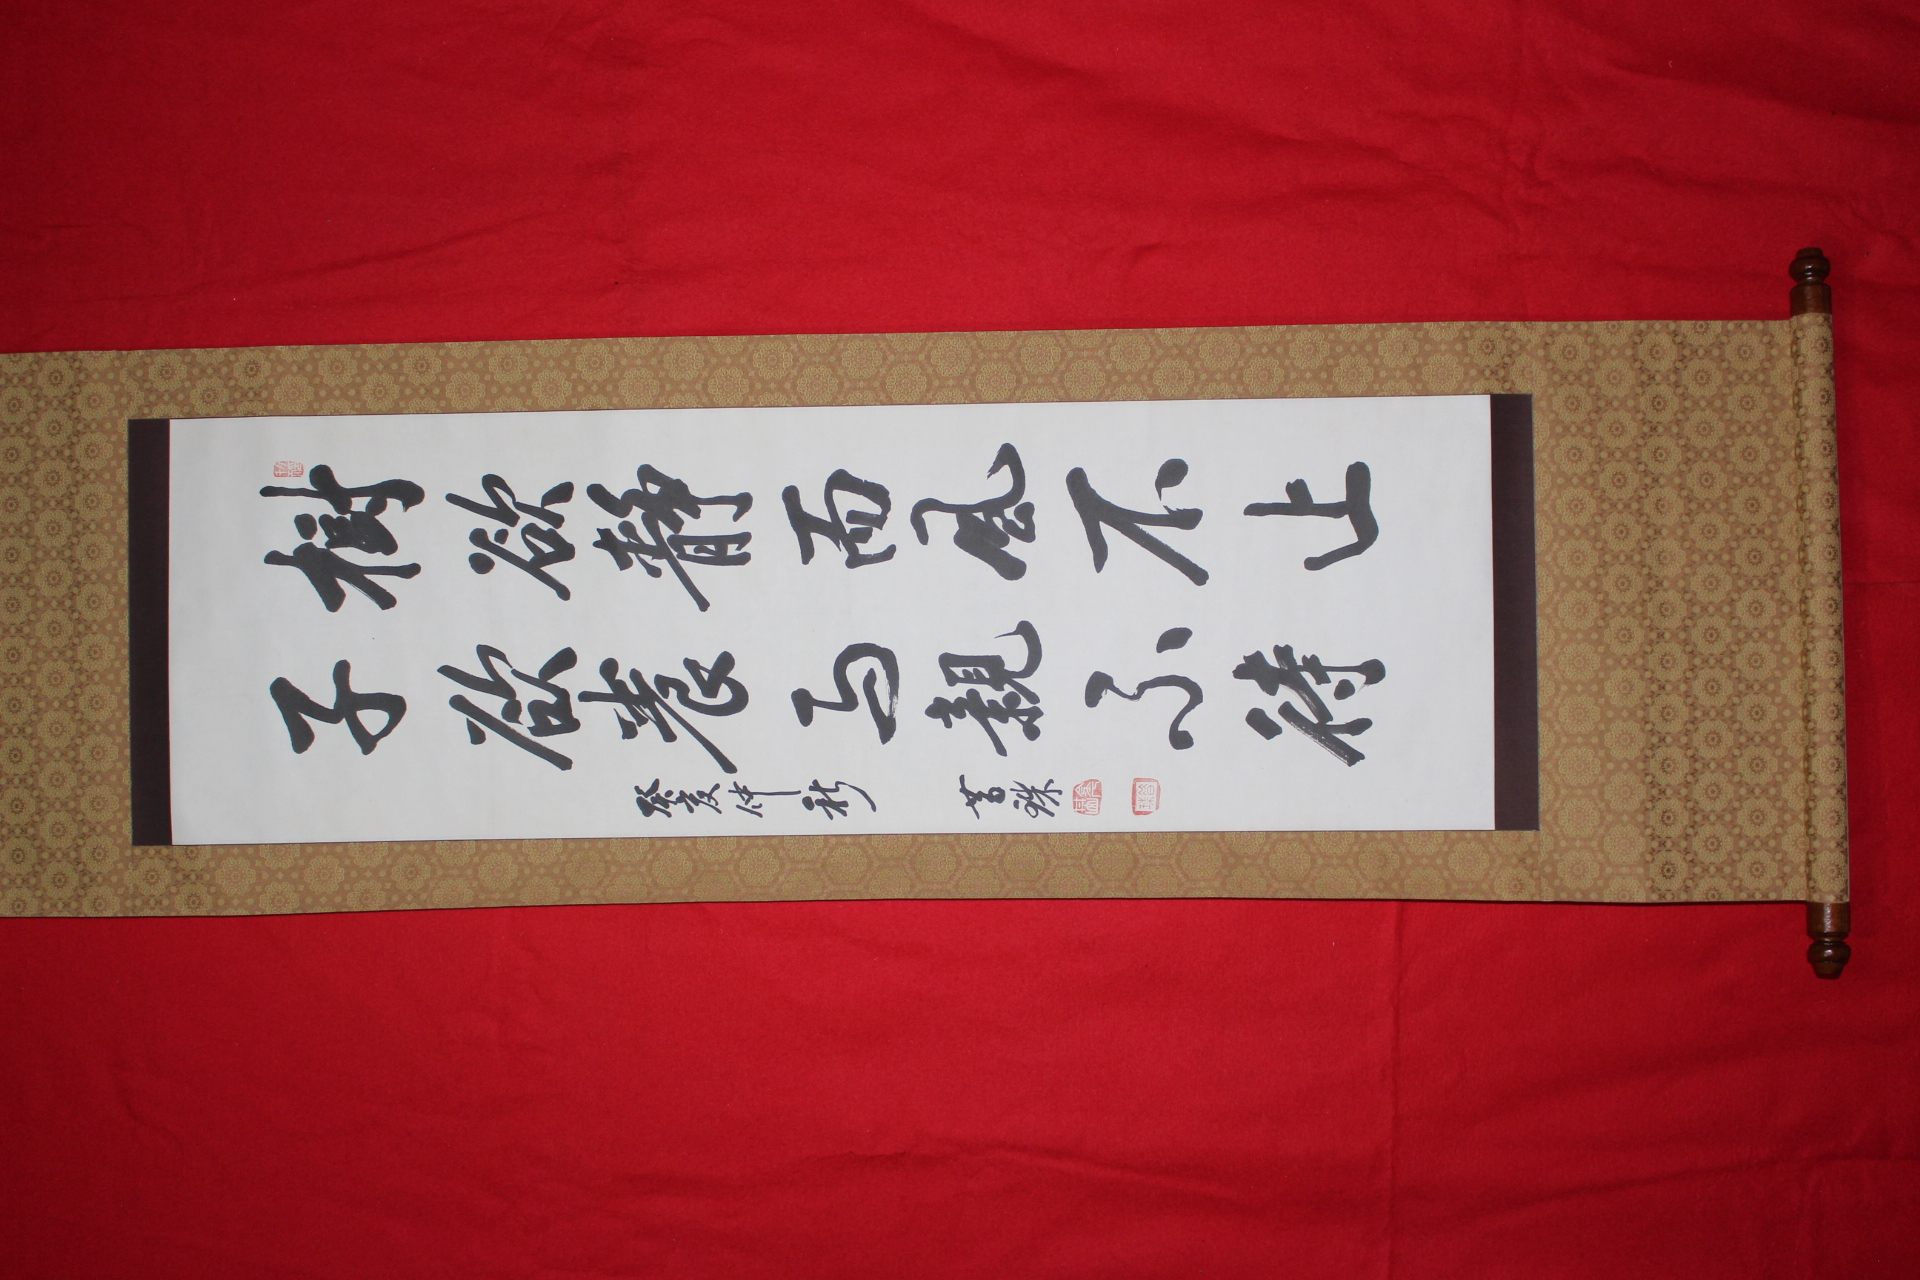 樹欲靜而風不止
子欲養而親不待
癸亥仲秋 珠